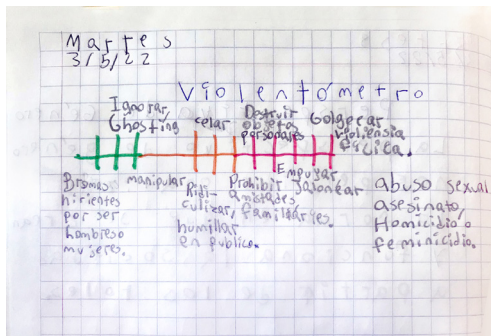 Martes
3/5/22
Violentómetro
Ignorar,
Ghosting
celar
Destruir
objeto
personales
Golgecar
Violensia
fícica.
Bromas
hirientes
por ser
hombres o
mujeres.
manipular
Ridi-
culizar,
humillar
en publico.
Prohibir
amistades,
familiares.
Empujar,
Jalonear
abuso sexual
asesinato,
Homicidio o
feminicidio.